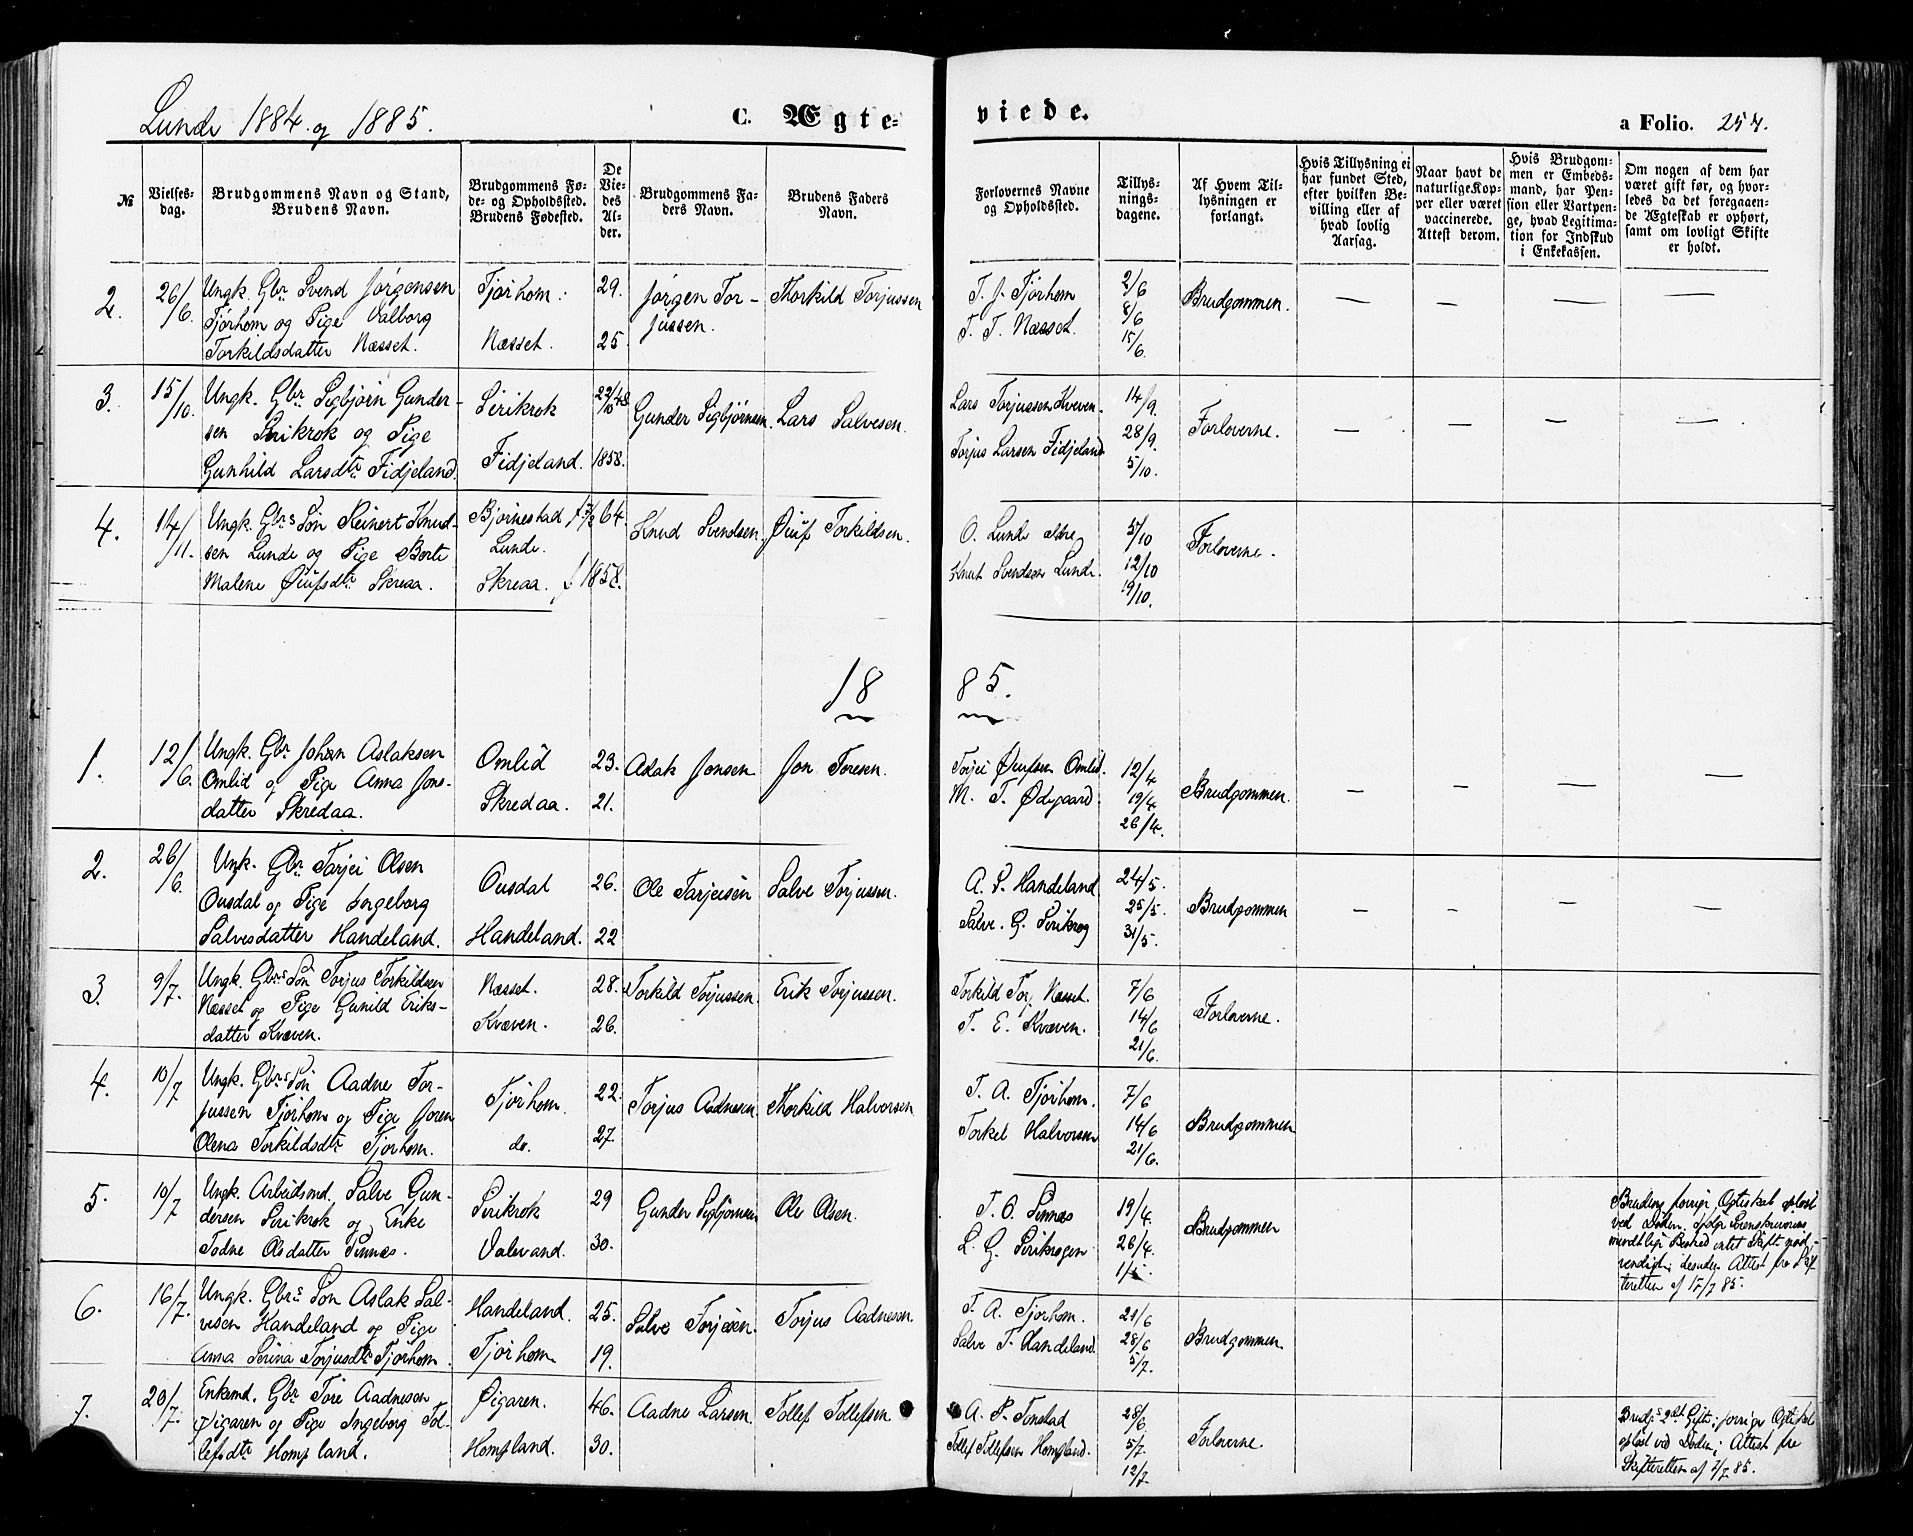 Lunde 1884 og 1885.
C. Ægteviede.
a Folio. 257.
№
Vielses-
dag.
Brudgommens Navn og Stand,
Brudens Navn.
Brudgommens Fø-
de- og Opholdssted.
Brudens Fødested.
De
Vie-
des
Al-
der.
Brudgommens Fa-
ders Navn.
Brudens Faders
Navn.
Forlovernes Navne
og Opholdssted.
Tillys-
nings-
dagene.
Af Hvem Til-
lysningen er
forlangt.
Hvis Tillysning ei
har fundet Sted,
efter hvilken Be-
villing eller af
hvad lovlig
Aarsag.
Naar havt de
naturlige Kop-
per eller været
vaccinerede.
Attest derom.
Hvis Brudgom-
men er Embeds-
mand, har Pen-
sion eller Vartpen-
ge, hvad Legitima-
tion for Indskud
i Enkekassen.
Om nogen af dem har
været gift før, og hvor-
ledes da det foregaaen-
de Ægteskab er ophørt,
samt om lovligt Skifte
er holdt.
2.
26/6.
Ungk. Gbr. Svend Jørgensen
Tjørhom og Pige Valborg
Torkildsdatter Næsset.
Tjørhom.
Næsset.
29.
25.
Jørgen Tor-
jussen.
Thorkild Torjussen
T. J. Tjørhom
T. T. Næsset.
2/6
8/6
15/6.
Brudgommen.
— — — —
3.
15/10.
Ungk. Gbr. Sigbjørn Gunder-
sen Sirikrok og Pige
Gunhild Larsdtr. Fidjeland.
Sirikrok
Fidjeland.
22/10 48
1858.
Gunder Sigbjørnsen.
Lars Salvesen.
Lars Torjussen Kveven.
Torjus Larsen Fidjeland
14/9.
28/9.
5/10.
Forloverne.
— — — —
4.
14/11.
Ungk. Gbrs. Søn Reinert Knud-
sen Lunde og Pige Berte
Malene Øiufsdtr. Skreaa.
Bjørnestad
Lunde.
Skreaa.
64.
f 1858.
Knud Svendsen.
Øiuf Torkildsen.
O. Lunde
Knut Svendsen Lunde.
5/10
12/10
19/10.
Forloverne.
1885.
1.
12/6.
Ungk. Gbr. Johan Aslaksen
Omlid og Pige Anna Jons-
datter Skredaa.
Omlid
Skredaa.
23.
21.
Aslak Jonsen
Jon Toresen.
Torjei Øiufsen Omlid.
M. T. Ødegaard.
12/4
19/4
26/4.
Brudgommen.
— — — —
2.
26/6.
Ungk. Gbr. Tarjei Olsen
Ousdal og Pige Ingeborg
Salvesdatter Handeland.
Ousdal
Handeland.
26.
22
Ole Tarjeisen
Salve Torjussen.
A. S. Handeland
Salve. G. Sirikrog
24/5.
25/5.
31/5.
Brudgommen
— — — —
3.
9/7.
Ungk. Gbrs. Søn Torjus Torkildsen
Næsset og Pige Gunild Eriks-
datter Kvæven.
Næsset.
Kvæven.
28.
26.
Torkild Torjussen.
Erik Torjussen.
Torkild Torj. Næsset.
T. E. Kvæven.
7/6
14/6
21/6.
Forloverne.
4.
10/7
Ungk. Gbrs. Søn Aadne Tor-
jussen Tjørhom og Pige Joren
Olena Torkildsdtr. Tjørhom.
Tjørhom.
do.
22.
27.
Torjus Aadnesen
Thorkild Halvorsen
T. A. Tjørhom.
Torkel Halvorsen
7/6
14/6
21/6.
Brudgommen
5.
10/7
Ungk. Arbeidsmd. Salve Gun-
dersen Sirikrok og Enke
Todne Olsdatter Sinnes.
Sirikrok
Valevand.
29
30.
Gunder Sigbjørnsen
Ole Olsen.
T. O. Sinnes
L. G. Sirikrogen
19/4.
26/4.
1/5.
Brudgommen
Brudens forrige Ægteskab opløst
ved Døden,
Besked intet Skifte nød-
vendigt; desuden Attest fra Skif-
teretten af 15/7 85.
6.
16/7.
Ungk. Gbrs. Søn Aslak Sal-
vesen Handeland og Pige
Anna Serina Torjusdtr. Tjørhom.
Handeland.
Tjørhom.
25.
19.
Salve Torjesen.
Torjus Aadnesen.
T. A. Tjørhom.
Salve T. Handeland.
21/6
28/6
5/7.
Brudgommen
7.
20/7.
Enkemd. Gbr. Tore Aadnesen
Øigaren og Pige Ingeborg Tol-
lefsdtr. Hompland.
Øigaren.
Hompland.
46.
30.
Aadne Larsen.
Tollef Tollefsen
A. P. Tonstad
Tollef Tollefsen Hompland.
28/6
5/7.
12/7.
Forloverne.
Brudg.s 2det Gifte; forrige Ægteskab
opløst ved Døden; Attest fra
Skifteretten af 2/7 85.